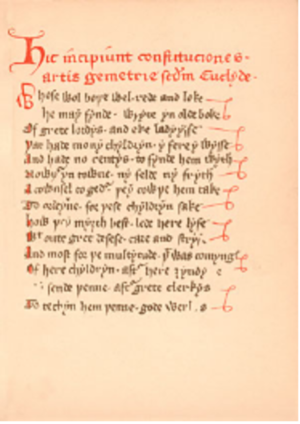 Hic incipiunt constituciones
artis gemetrie secdm Euclyde.
Whose wol boþe wel rede and loke
He may fynde wryte yn olde boke
Of grete lordys and eke ladyysse
Þat hade mony chyldryn y fere y wysse
And hade no rentys to fynde hem wyth
Nowþyr yn towne ny felde ny fryth
A cownsel togedr þey cowþe hem take
To ordeyne for þese chyldryn sake
How þey myȝth best lede here lyfe
Wt oute grete desese care and stryf
And most for þe multytude þt was comyng
Of here chyldryn aftr here ȝyndy
sende þenne aftr grete clerkys
To techyn hem þenne gode werkes